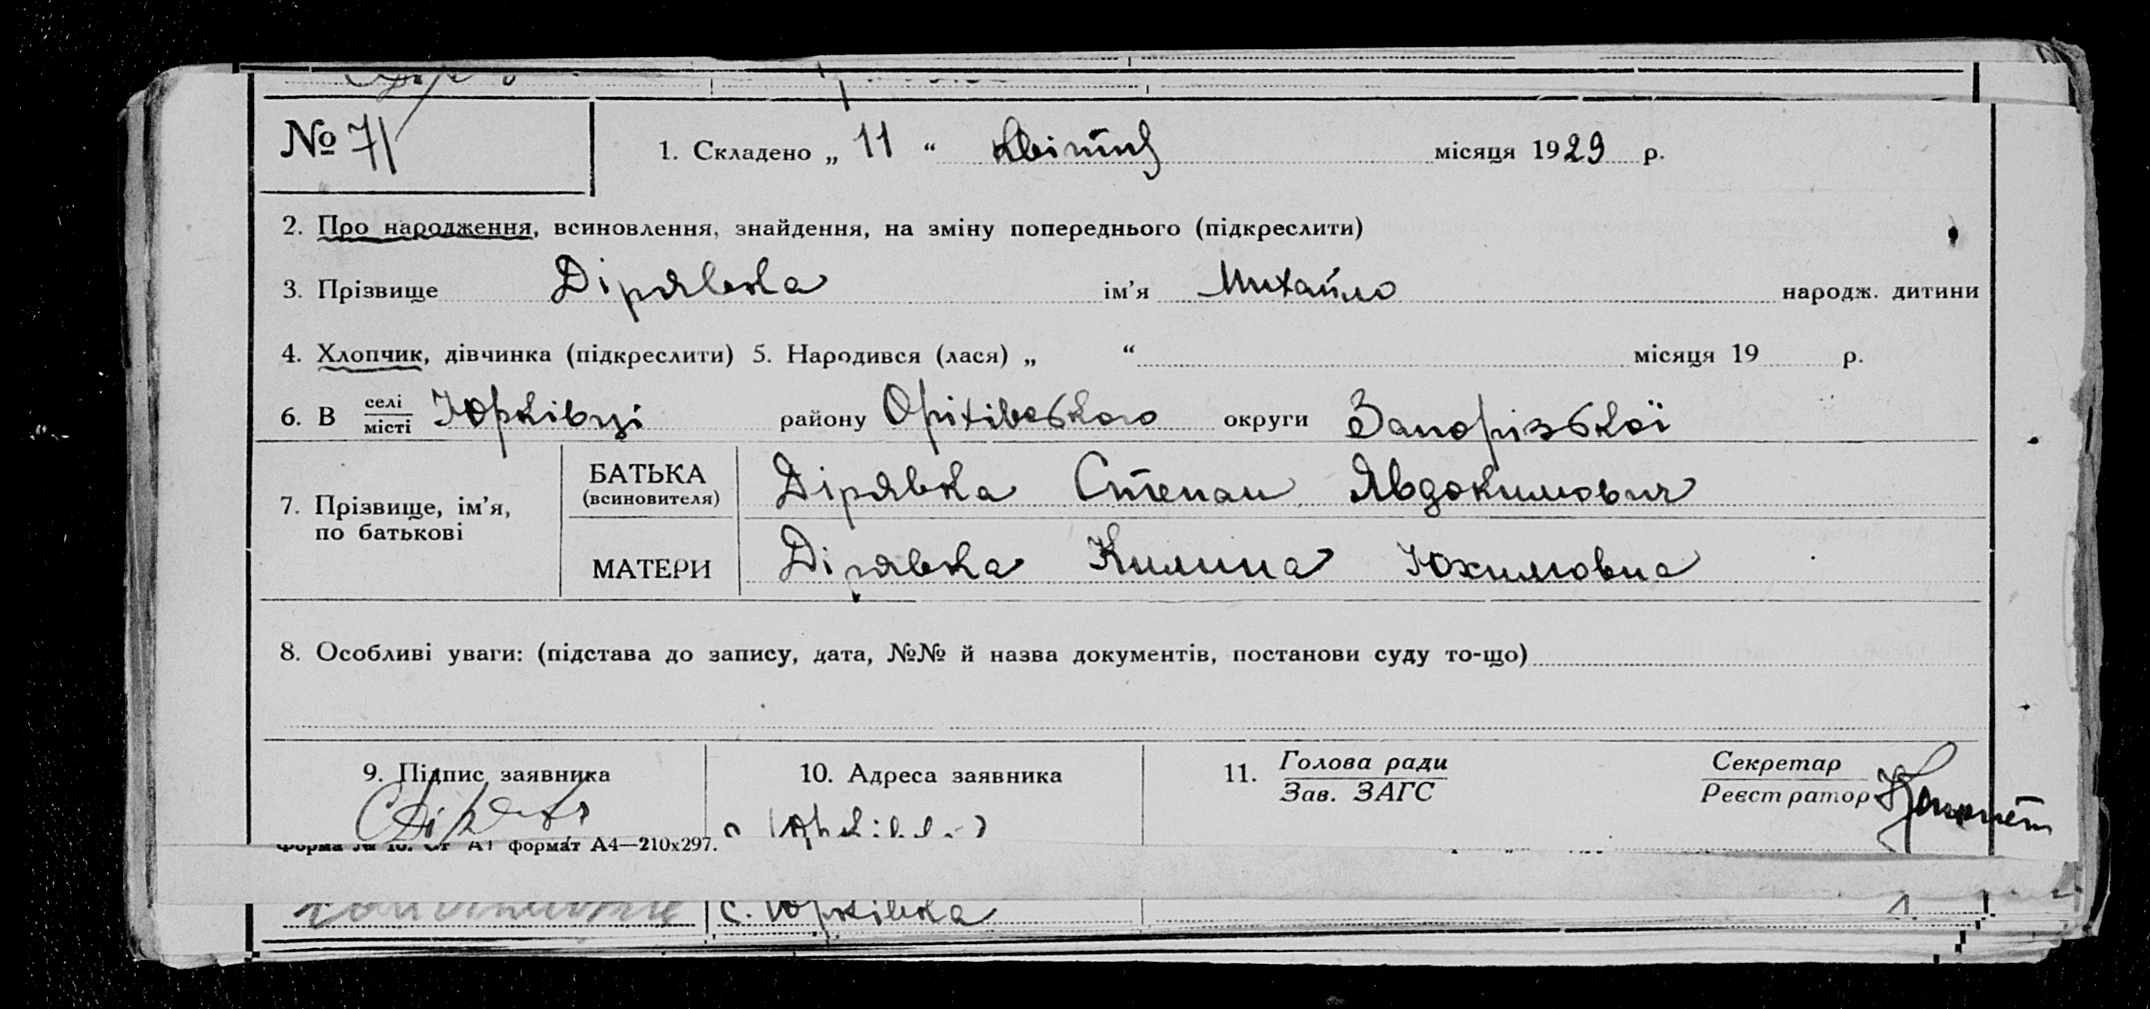 № 71
1. Складено „ 11 “ квітня місяця 1929 р.
2. Про народження, всиновлення, знайдення, на зміну попереднього (підкреслити)
3. Прізвище Дірявка ім’я Михайло народж. дитини
4. Хлопчик, дівчинка (підкреслити) 5. Народився (лася) „ “ місяця 19 р.
6. В селі місті Юрківці району Оріхівського округи Запорізької
7. Прізвище, ім’я, по батькові
БАТЬКА (всиновителя) Дірявка Степан Явдокимович
МАТЕРИ Дірявка Килина Юхимовна
8. Особливі уваги: (підстава до запису, дата, №№ й назва документів, постанови суду то-що)
9. Підпис заявника 10. Адреса заявника 11. Голова ради Зав. ЗАГС Секретар Реєстратор
формат А4—210х297.
с. Юрківка